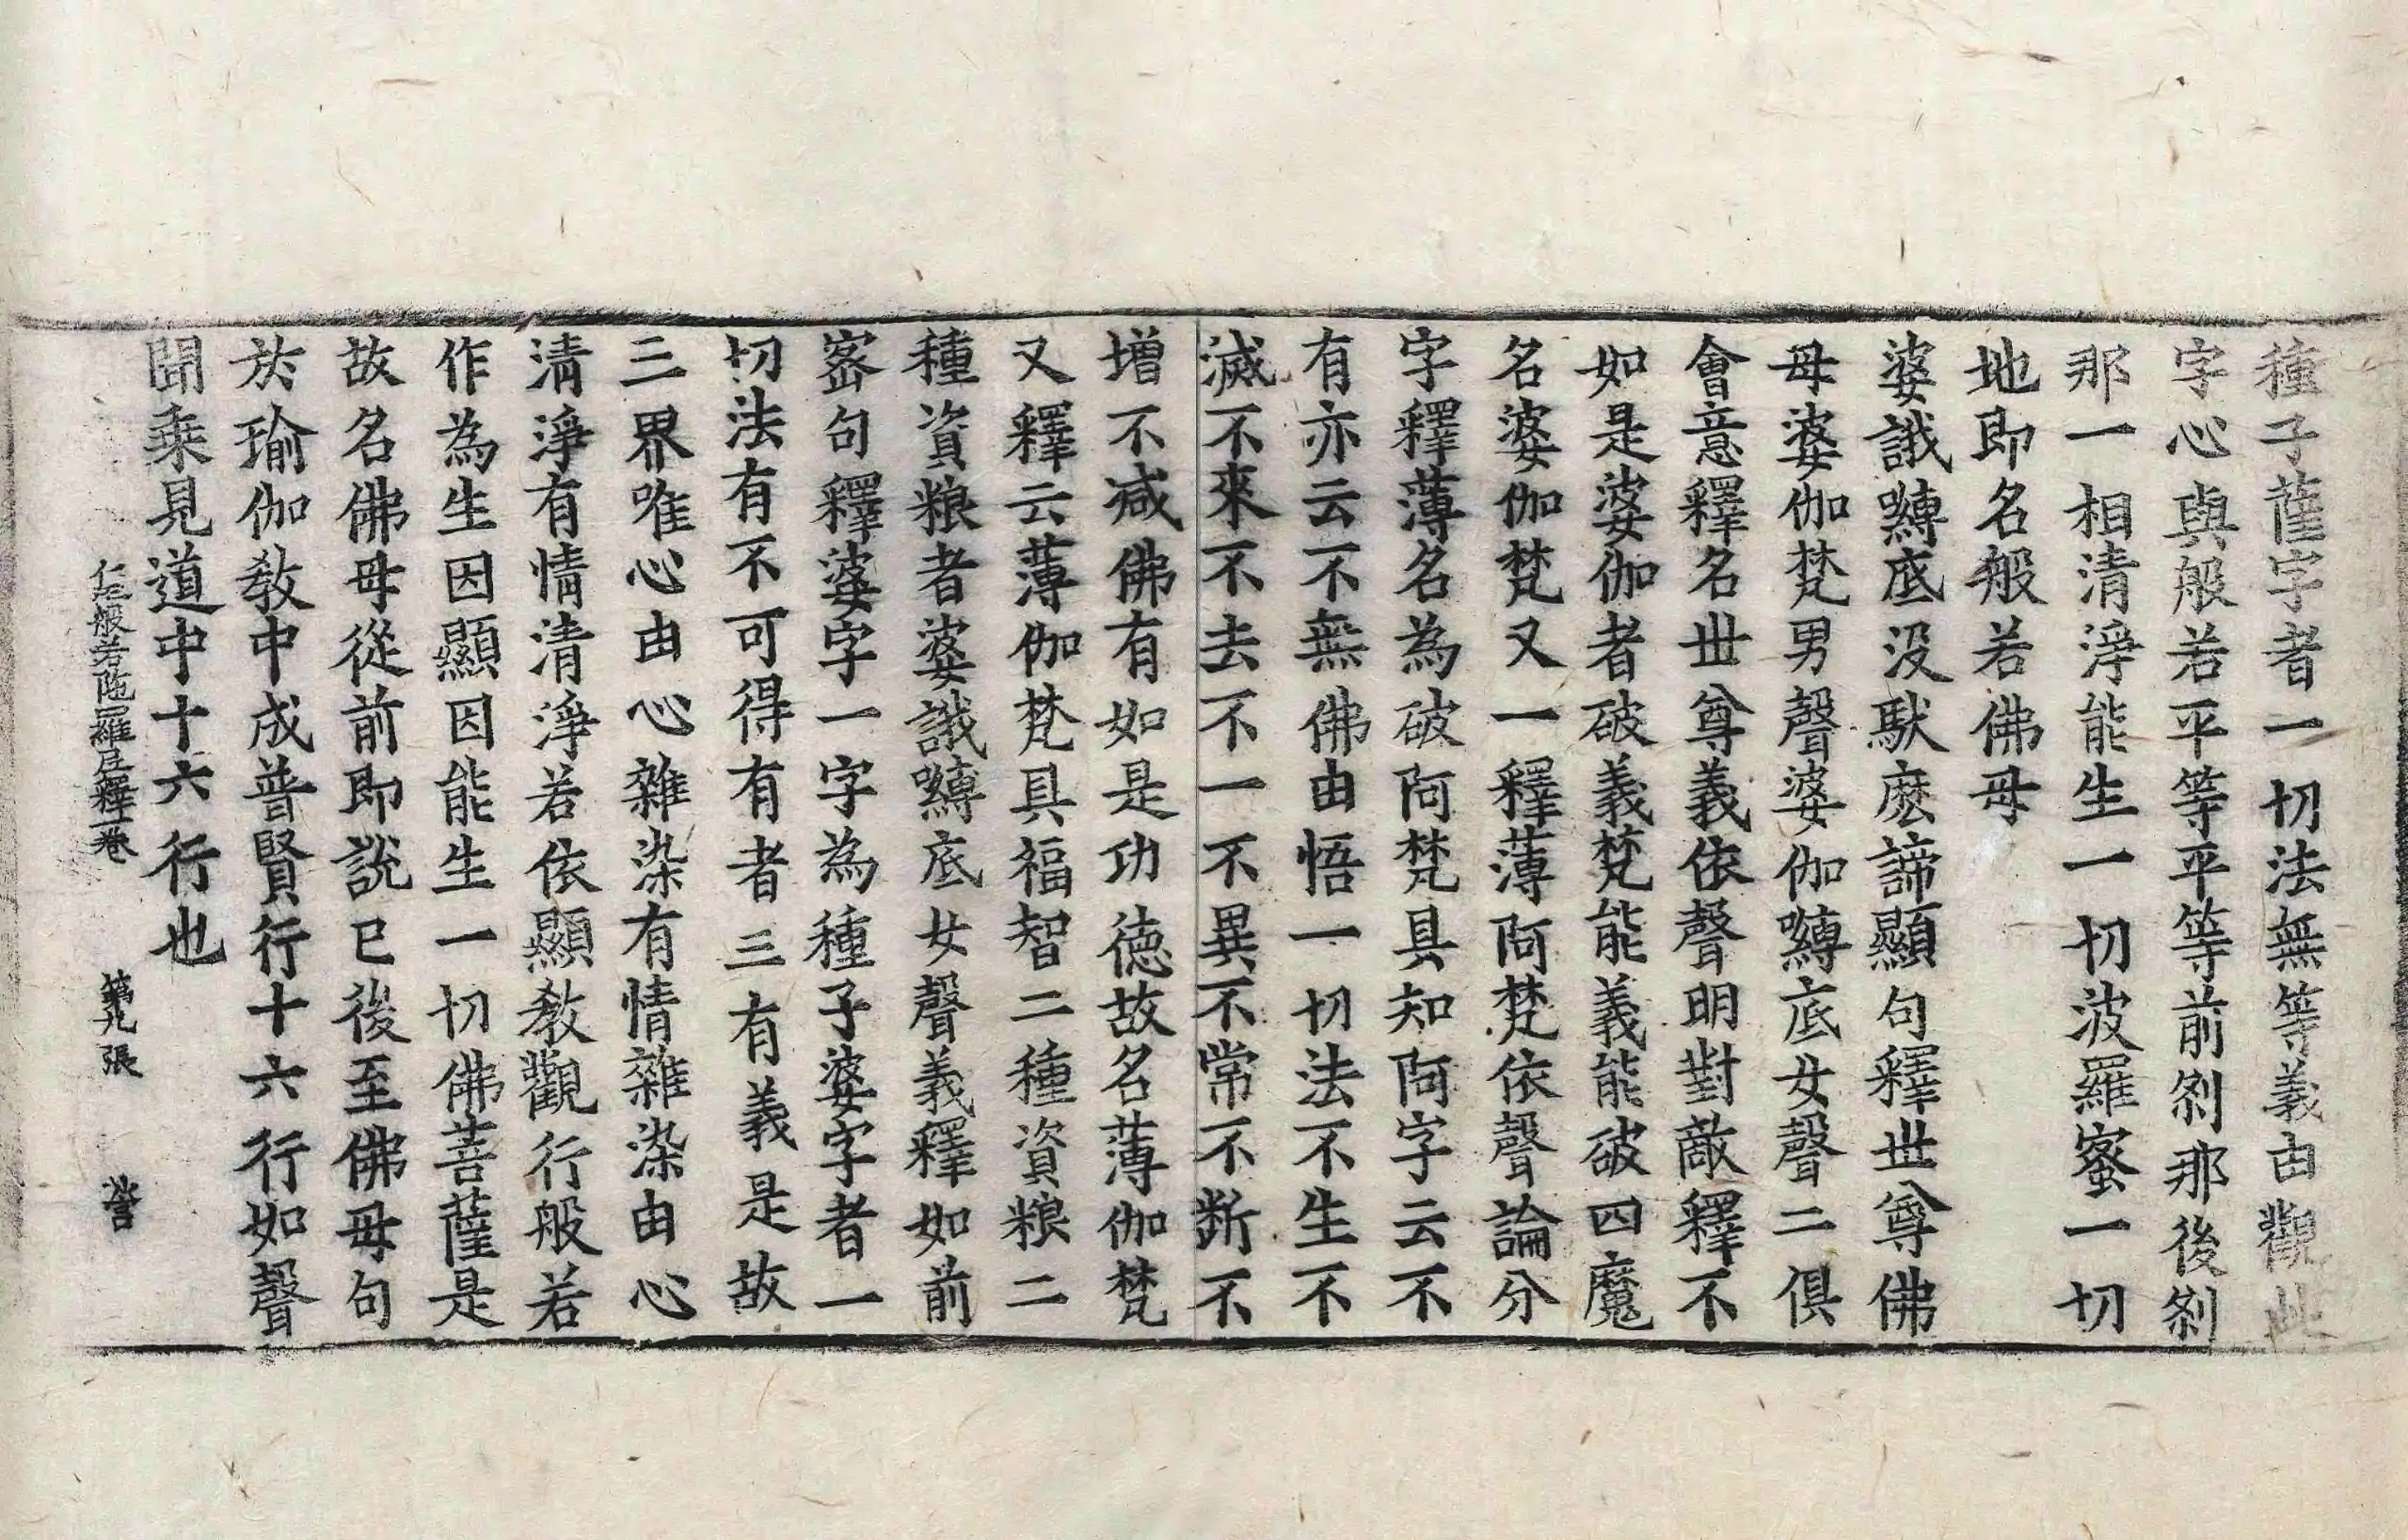 種子薩字者一切法無等義由觀此
字心與般若平等平等前刹那後刹
那一相清淨能生一切波羅蜜一切
地即名般若佛母
婆誐嚩底没馱麽諦顯句釋世尊佛
母婆伽梵男聲婆伽嚩底女聲二俱
會意釋名世尊義依聲明對敵釋不
如是婆伽者破義梵能義能破四魔
名婆伽梵又一釋薄阿梵依聲論分
字釋薄名為破阿梵具知阿字云不
有亦云不無佛由悟一切法不生不
滅不來不去不一不異不常不断不
増不减佛有如是功德故名薄伽梵
又釋云薄伽梵具福智二種資粮二
種資粮者婆誐嚩底女聲義釋如前
宻句釋婆字一字為種子婆字者一
切法有不可得有者三有義是故
三界唯心由心雜染有情雜染由心
清淨有情清淨若依顯教觀行般若
作為生因顯因能生一切佛菩薩是
故名佛母從前即説已後至佛母句
於瑜伽教中成普賢行十六行如聲
聞乗見道中十六行也
仁王般若陁羅尼釋一卷 第九張 營